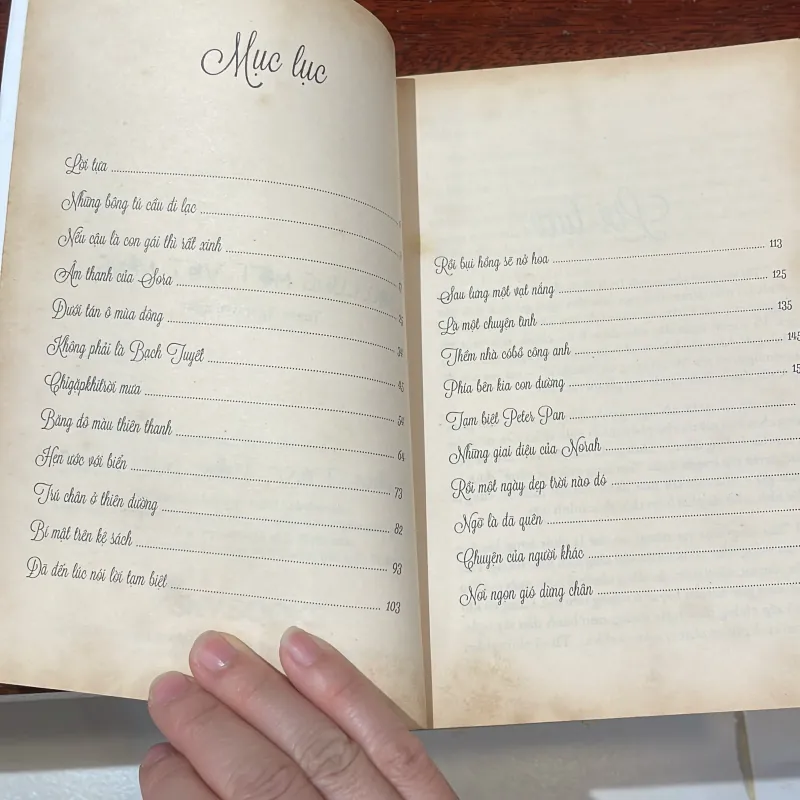 Mục lục
Lời tựa
Những bông tú cầu đi lạc
Nếu cậu là con gái thì rất xinh
Âm thanh của Sora
Dưới tán ô mùa đông
Không phải là Bạch Tuyết 45
Chỉgặpkhitrời mưa 54
Băng đô màu thiên thanh 64
Hẹn ước với biển 73
Trú chân ở thiên đường 82
Bí mật trên kệ sách 93
Đã đến lúc nói lời tạm biệt 103
Rồi bụi hồng sẽ nở hoa 113
Sau lưng một vạt nắng 125
Là một chuyện tình 135
Thềm nhà cóbố công anh 145
Phía bên kia con đường
Tạm biệt Peter Pan
Những giai điệu của Norah
Rồi một ngày đẹp trời nào đó
Ngỡ là đã quên
Chuyện của người khác
Nơi ngọn gió dừng chân